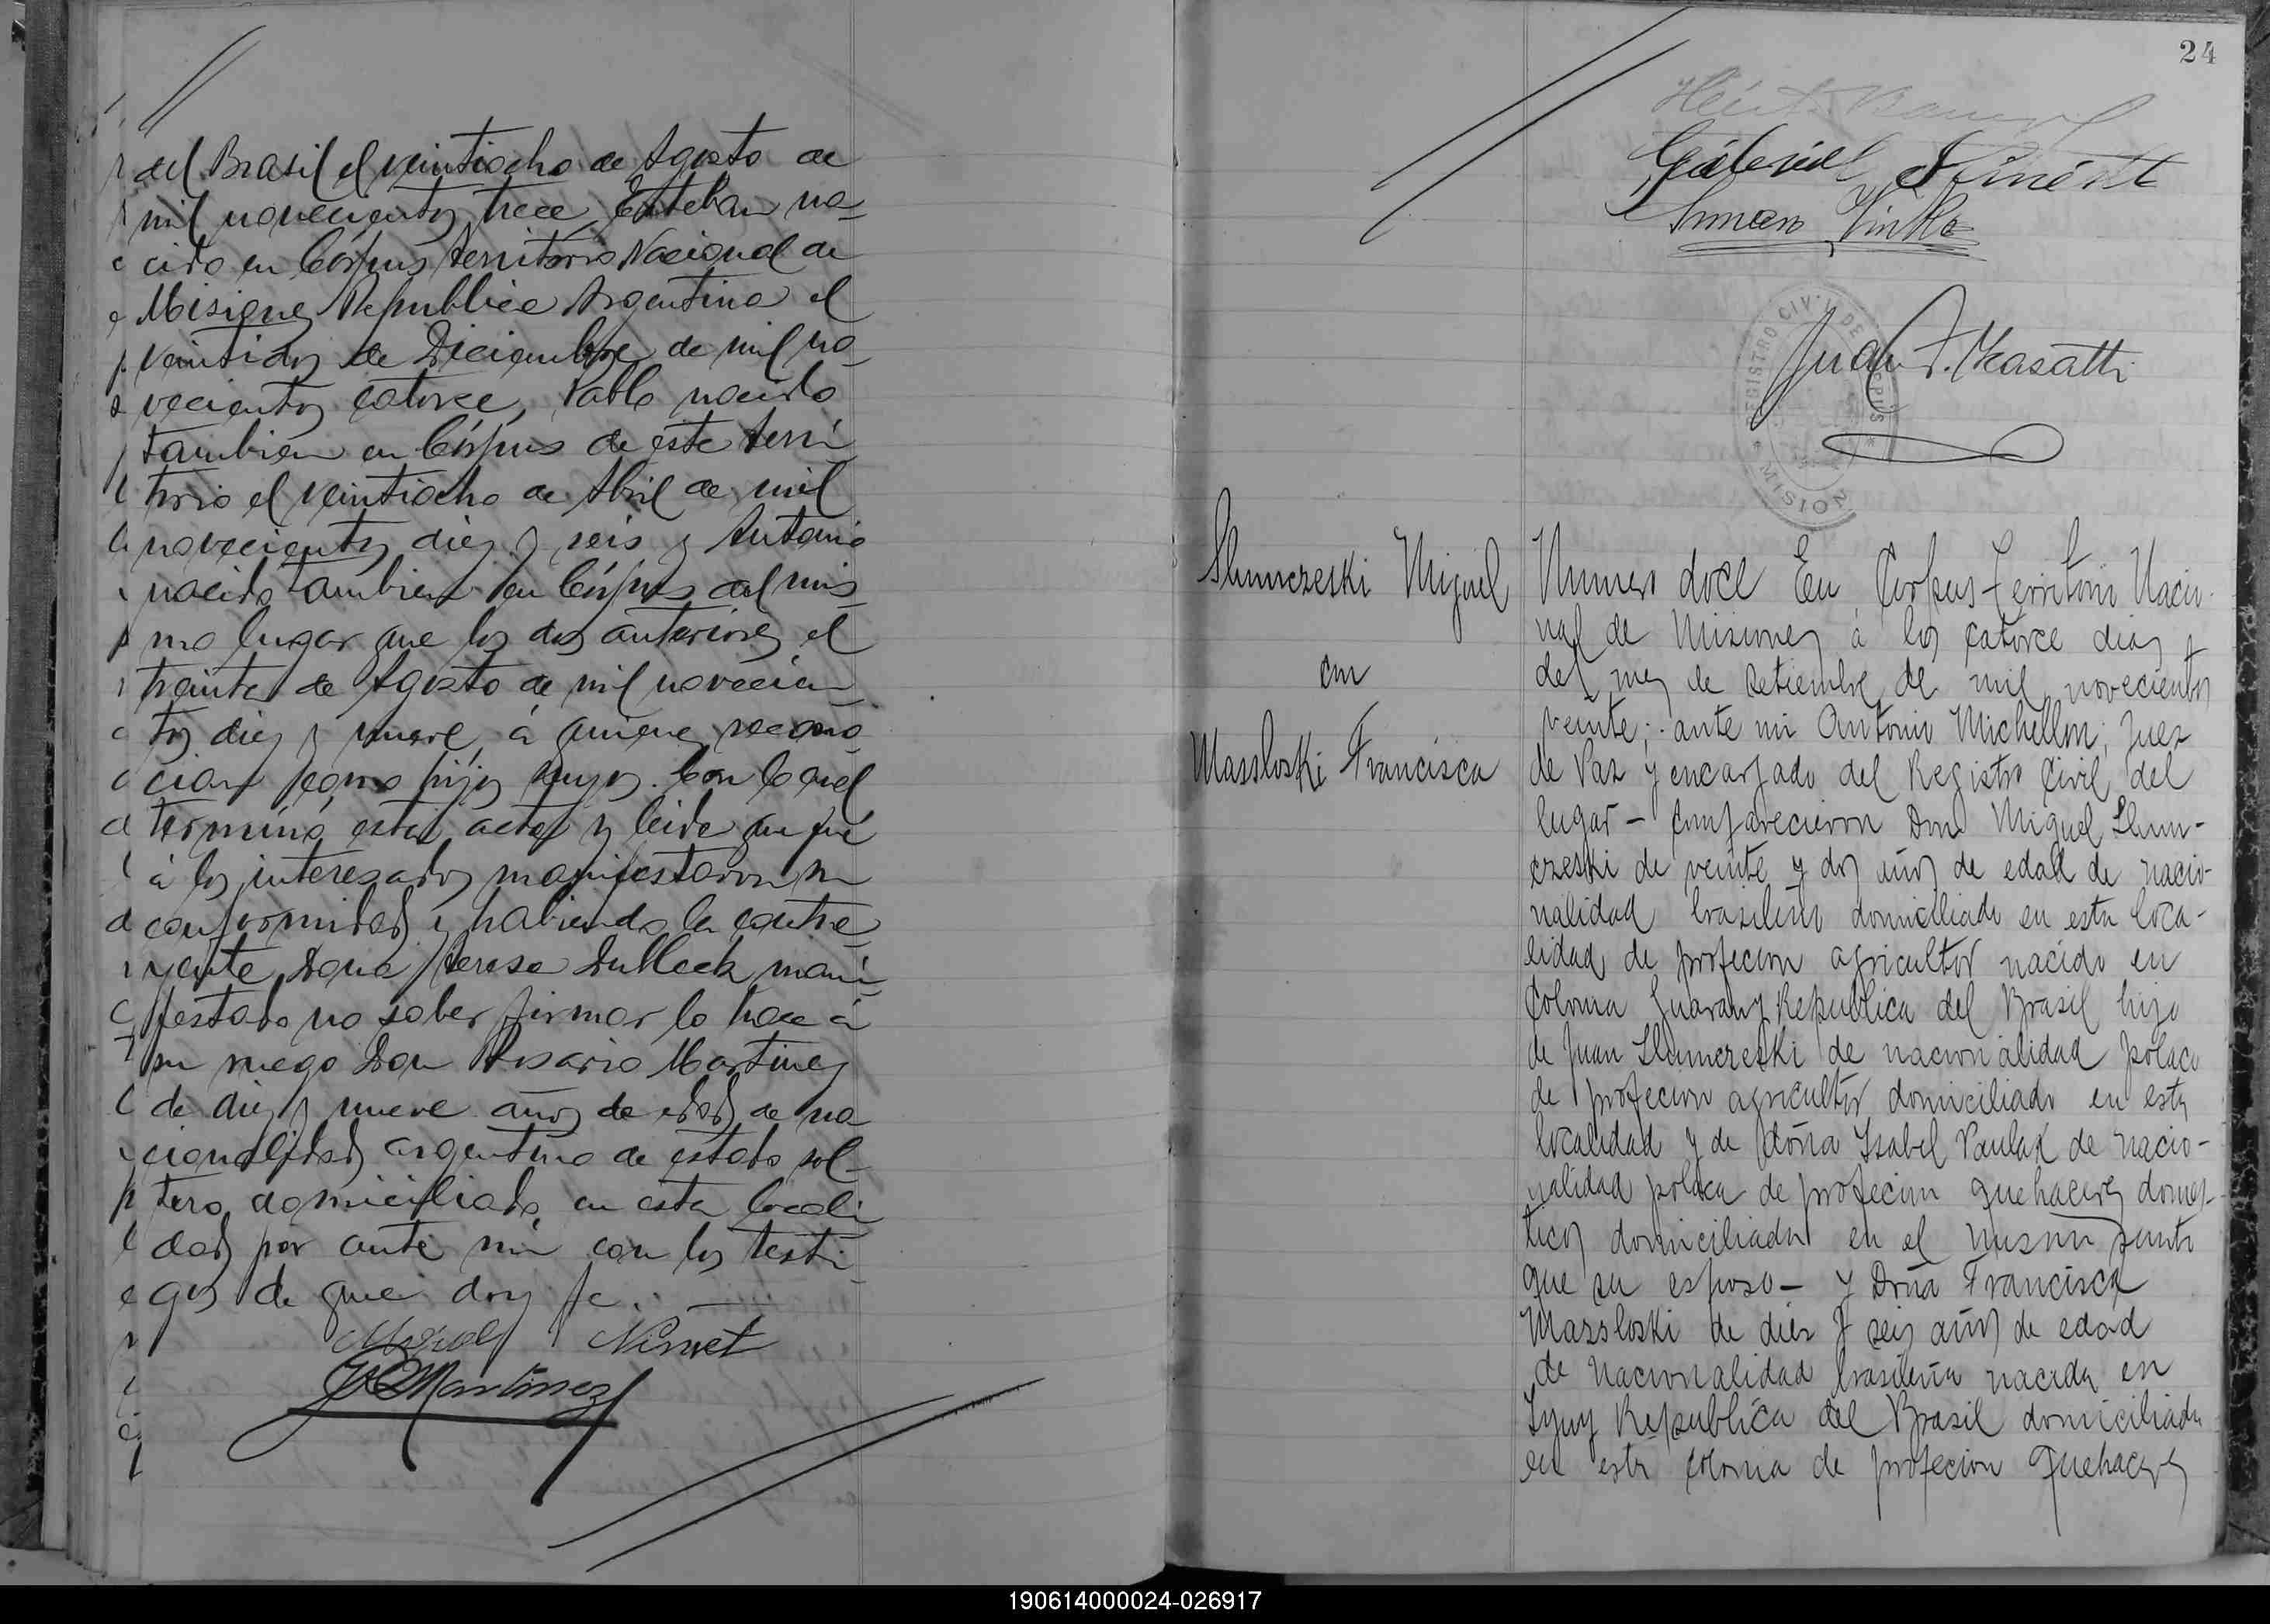 del Brasil el veintiocho de Agosto de
mil novecientos trece, Esteban na-
cido en Córpus territorio Nacional de
Misiones Republica Argentina el
veintidos de Diciembre de mil no-
vecientos catorce, Pablo nacido
tambien en Córpus de este terri-
torio el veintiocho de Abril de mil
novecientos diez y seis y Antonio
nacido tambien en Córpus del mis-
mo lugar que los dos anteriores el
treinta de Agosto de mil novecien-
tos diez y nueve, á quienes recono-
cian como hijos suyos. Con lo cual
terminó esta acta y leida que fué
á los interesados manifestaron su
conformidad y habiendo la contra-
yente Doña Teresa Dulleck mani-
festado no saber firmar lo hace á
su ruego Don Rosario Martinez
de diez y nueve años de edad de na-
cionalidad argentino de estado sol-
tero domiciliado en esta locali-
dad por ante mi con los testi-
gos de que doy fe.
J R Martinez
24
Gabriel
Juan P. Masatti
REGISTRO CIVIL DE CORPUS * MISIONES *
Slumczeski Miguel
con
Massloski Francisca
Numero doce En Corpus-Territorio Nacio-
nal de Misiones á los catorce dias
del mes de Setiembre de mil novecientos
veinte; ante mi Antonio Michellon; Juez
de Paz y encargado del Registro Civil del
lugar - Comparecieron Don Miguel Slum-
czeski de veinte y dos años de edad de nacio-
nalidad brasileño domiciliado en esta loca-
lidad de profecion agricultor nacido en
Colonia Guarany Republica del Brasil hijo
de Juan Slumczeski de nacionalidad polaco
de profecion agricultor domiciliado en esta
localidad y de doña Isabel Paulak de nacio-
nalidad polaca de profecion quehaceres domes-
ticos domiciliada en el mismo punto
que su esposo - y Doña Francisca
Massloski de diez y seis años de edad
de nacionalidad brasileña nacida en
Yjuy Republica del Brasil domiciliada
en esta colonia de profecion quehaceres
190614000024-026917